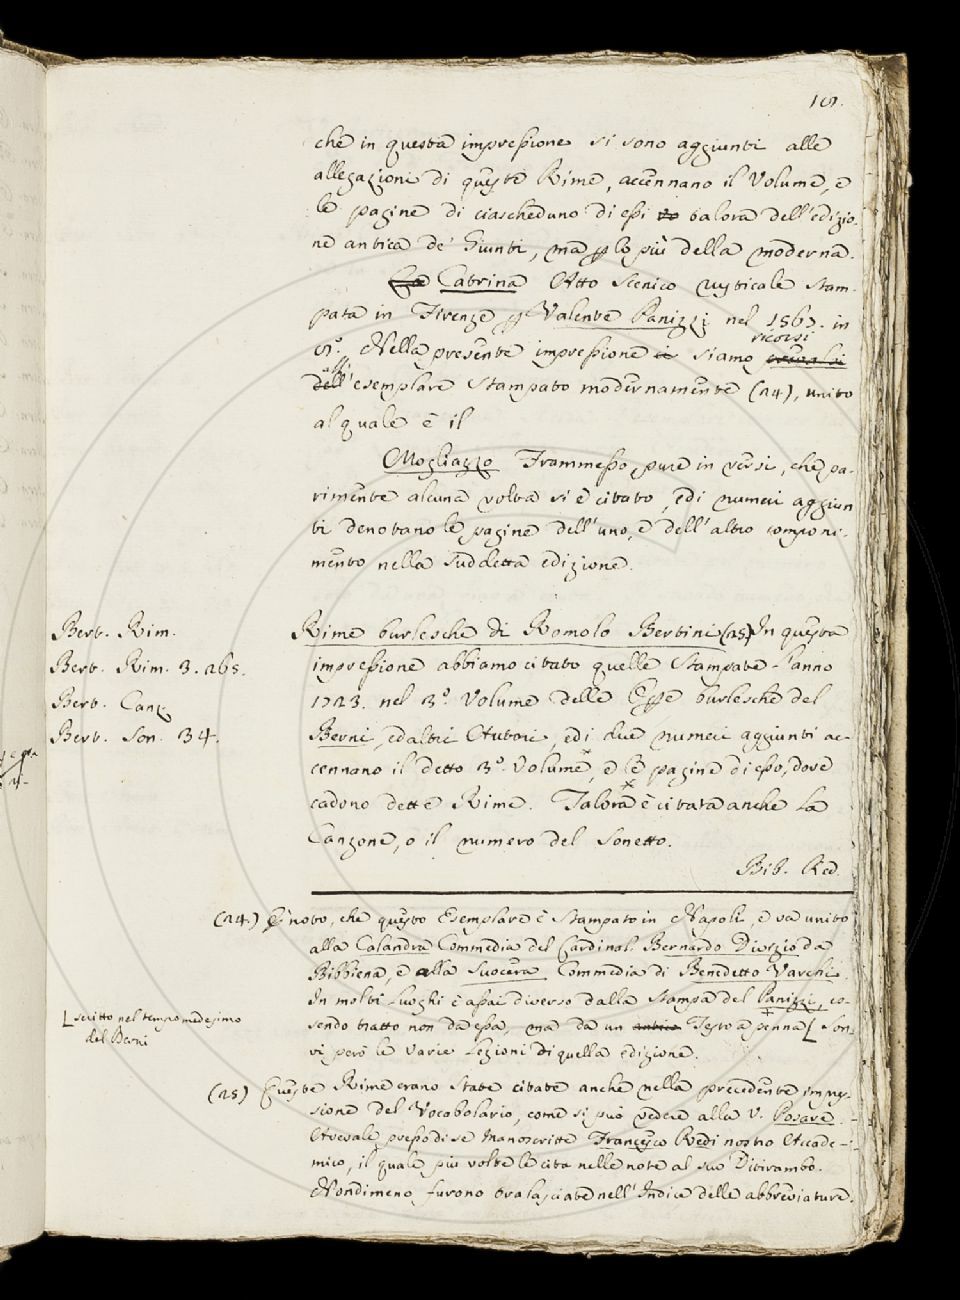 che in questa impressione si sono aggiunti alle
allegazioni di queste Rime, accennano il Volume, e
le pagine di ciascheduno di essi talora dell'edizio-
ne antica de' Giunti, ma p lo più della moderna.
Catrina Atto Scenico rusticale stam-
pata in Firenze p Valente Panizzi nel 1567. in
8º. Nella presente impressione siamo ricorsi
all'esemplare stampato modernamente (24), unito
al quale è il
Mogliazzo Frammesso, pure in versi, che pa-
rimente alcuna volta si è citato, ed i numeri aggiun
ti denotano le pagine dell'uno, e dell'altro componi-
mento nella suddetta edizione.
Bert. Rim.
Bert. Rim. 3. 265.
Bert. Canz.
Bert. Son. 34.
Rime burlesche di Romolo Bertini (25) In questa
impressione abbiamo citato quelle stampate l'anno
1723. nel 3º. Volume delle Opere burlesche del
Berni, ed altri Autori, ed i due numeri aggiunti ac-
cennano il detto 3º. Volume, e le pagine di esso, dove
cadono dette Rime. Talora è citata anche la
Canzone, o il numero del Sonetto.
Bib. Red.
(24.) E' noto, che questo Esemplare è stampato in Napoli, e va unito
alla Calandra Commedia del Cardinal. Bernardo Divizio da
Bibbiena, e alla Suocera Commedia di Benedetto Varchi.
In molti luoghi è assai diverso dalla stampa del Panizzi, es-
sendo tratto non da essa, ma da un antico Testo a penna [ Son
vi però le varie Lezioni di quella edizione.
[ scritto nel tempo medesimo
del Berni
(25) Queste Rime erano state citate anche nella precedente impres-
sione del Vocabolario, come si può vedere alla V. Posare.
Avevale presso di se manoscritte Francesco Redi nostro Accade-
mico, il quale più volte le cita nelle note al suo Ditirambo.
Nondimeno furono tralasciate nell'Indice delle abbreviature.